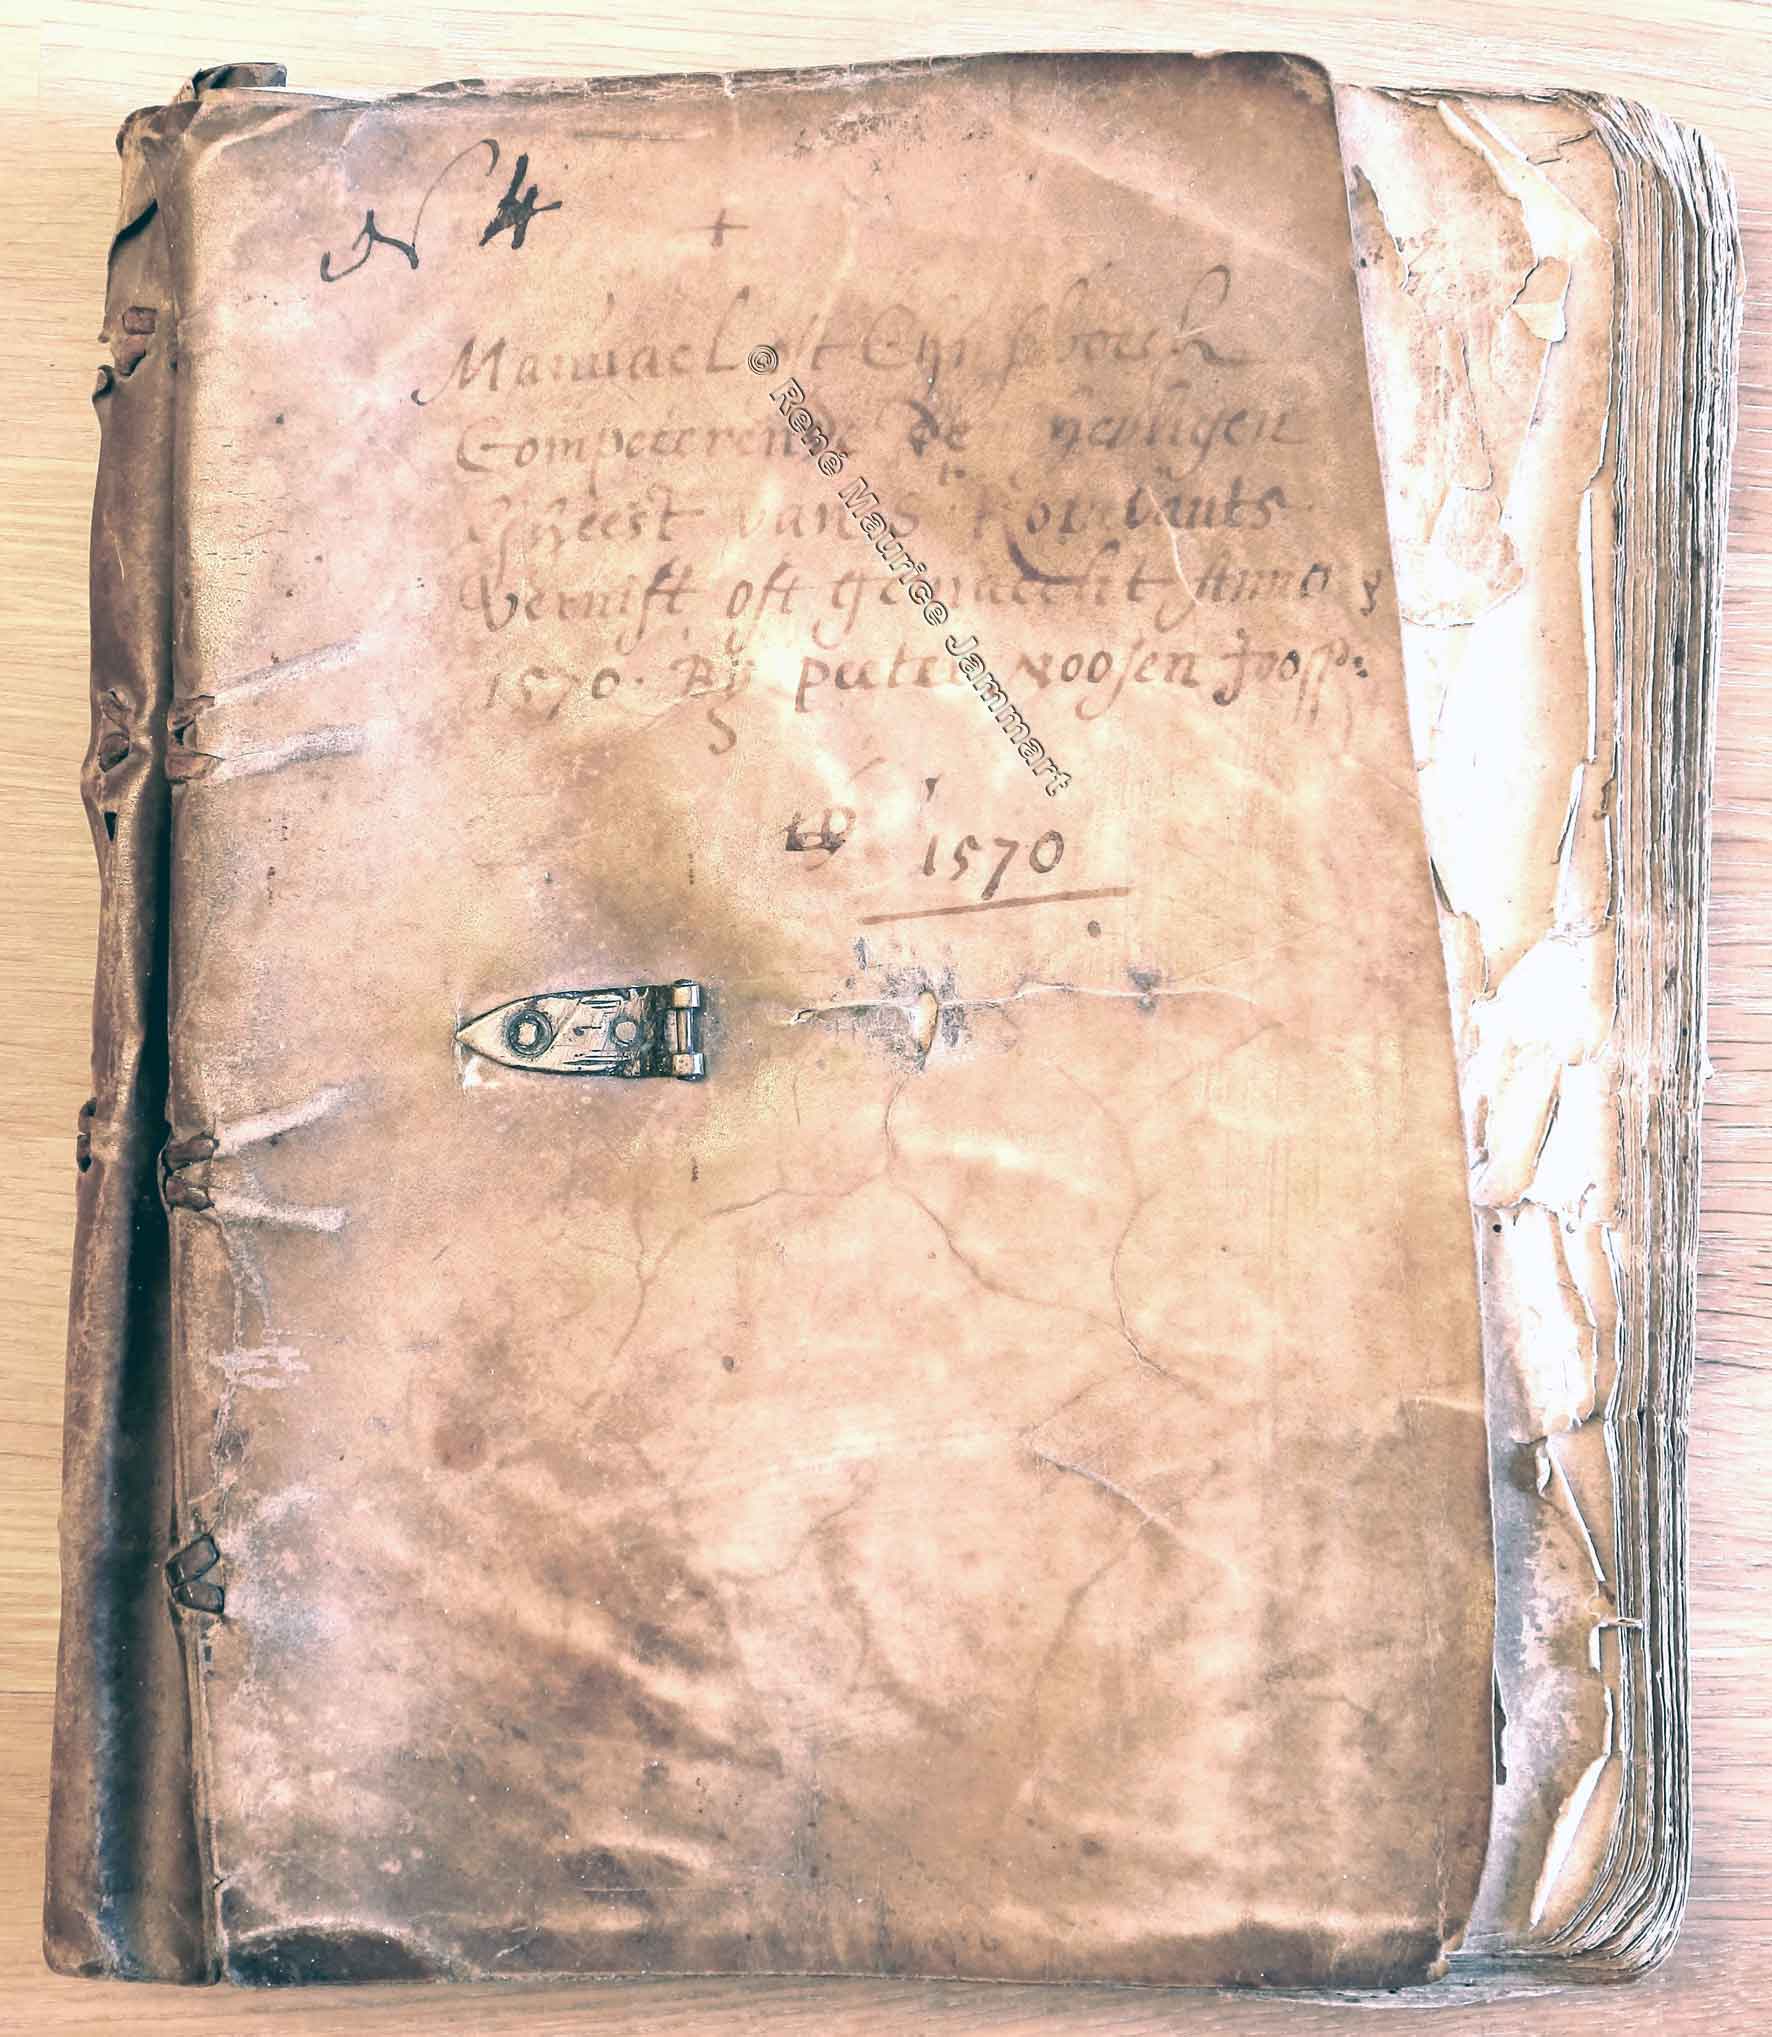 N 4
+
Manuael oft Chijnsbouck
Competerende De heylighen
Gheest van Sr Rombauts
Vernift oft Ghemaeckt Anno
1570. Bij peeter roosen
1570
© René Maurice Jammart